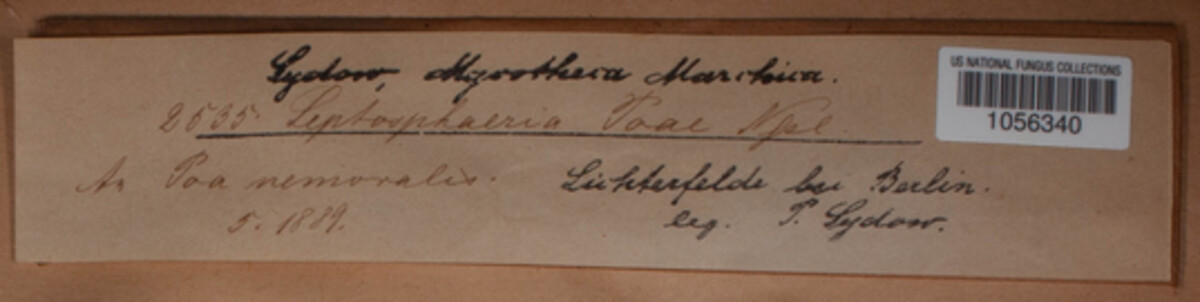 Sydow, Mycotheca Marchica.
2535. Leptosphaeria Poae Nssl.
An Poa nemoralis.
5. 1889.
Lichterfelde bei Berlin.
leg. P. Sydow.
US NATIONAL FUNGUS COLLECTIONS
1056340